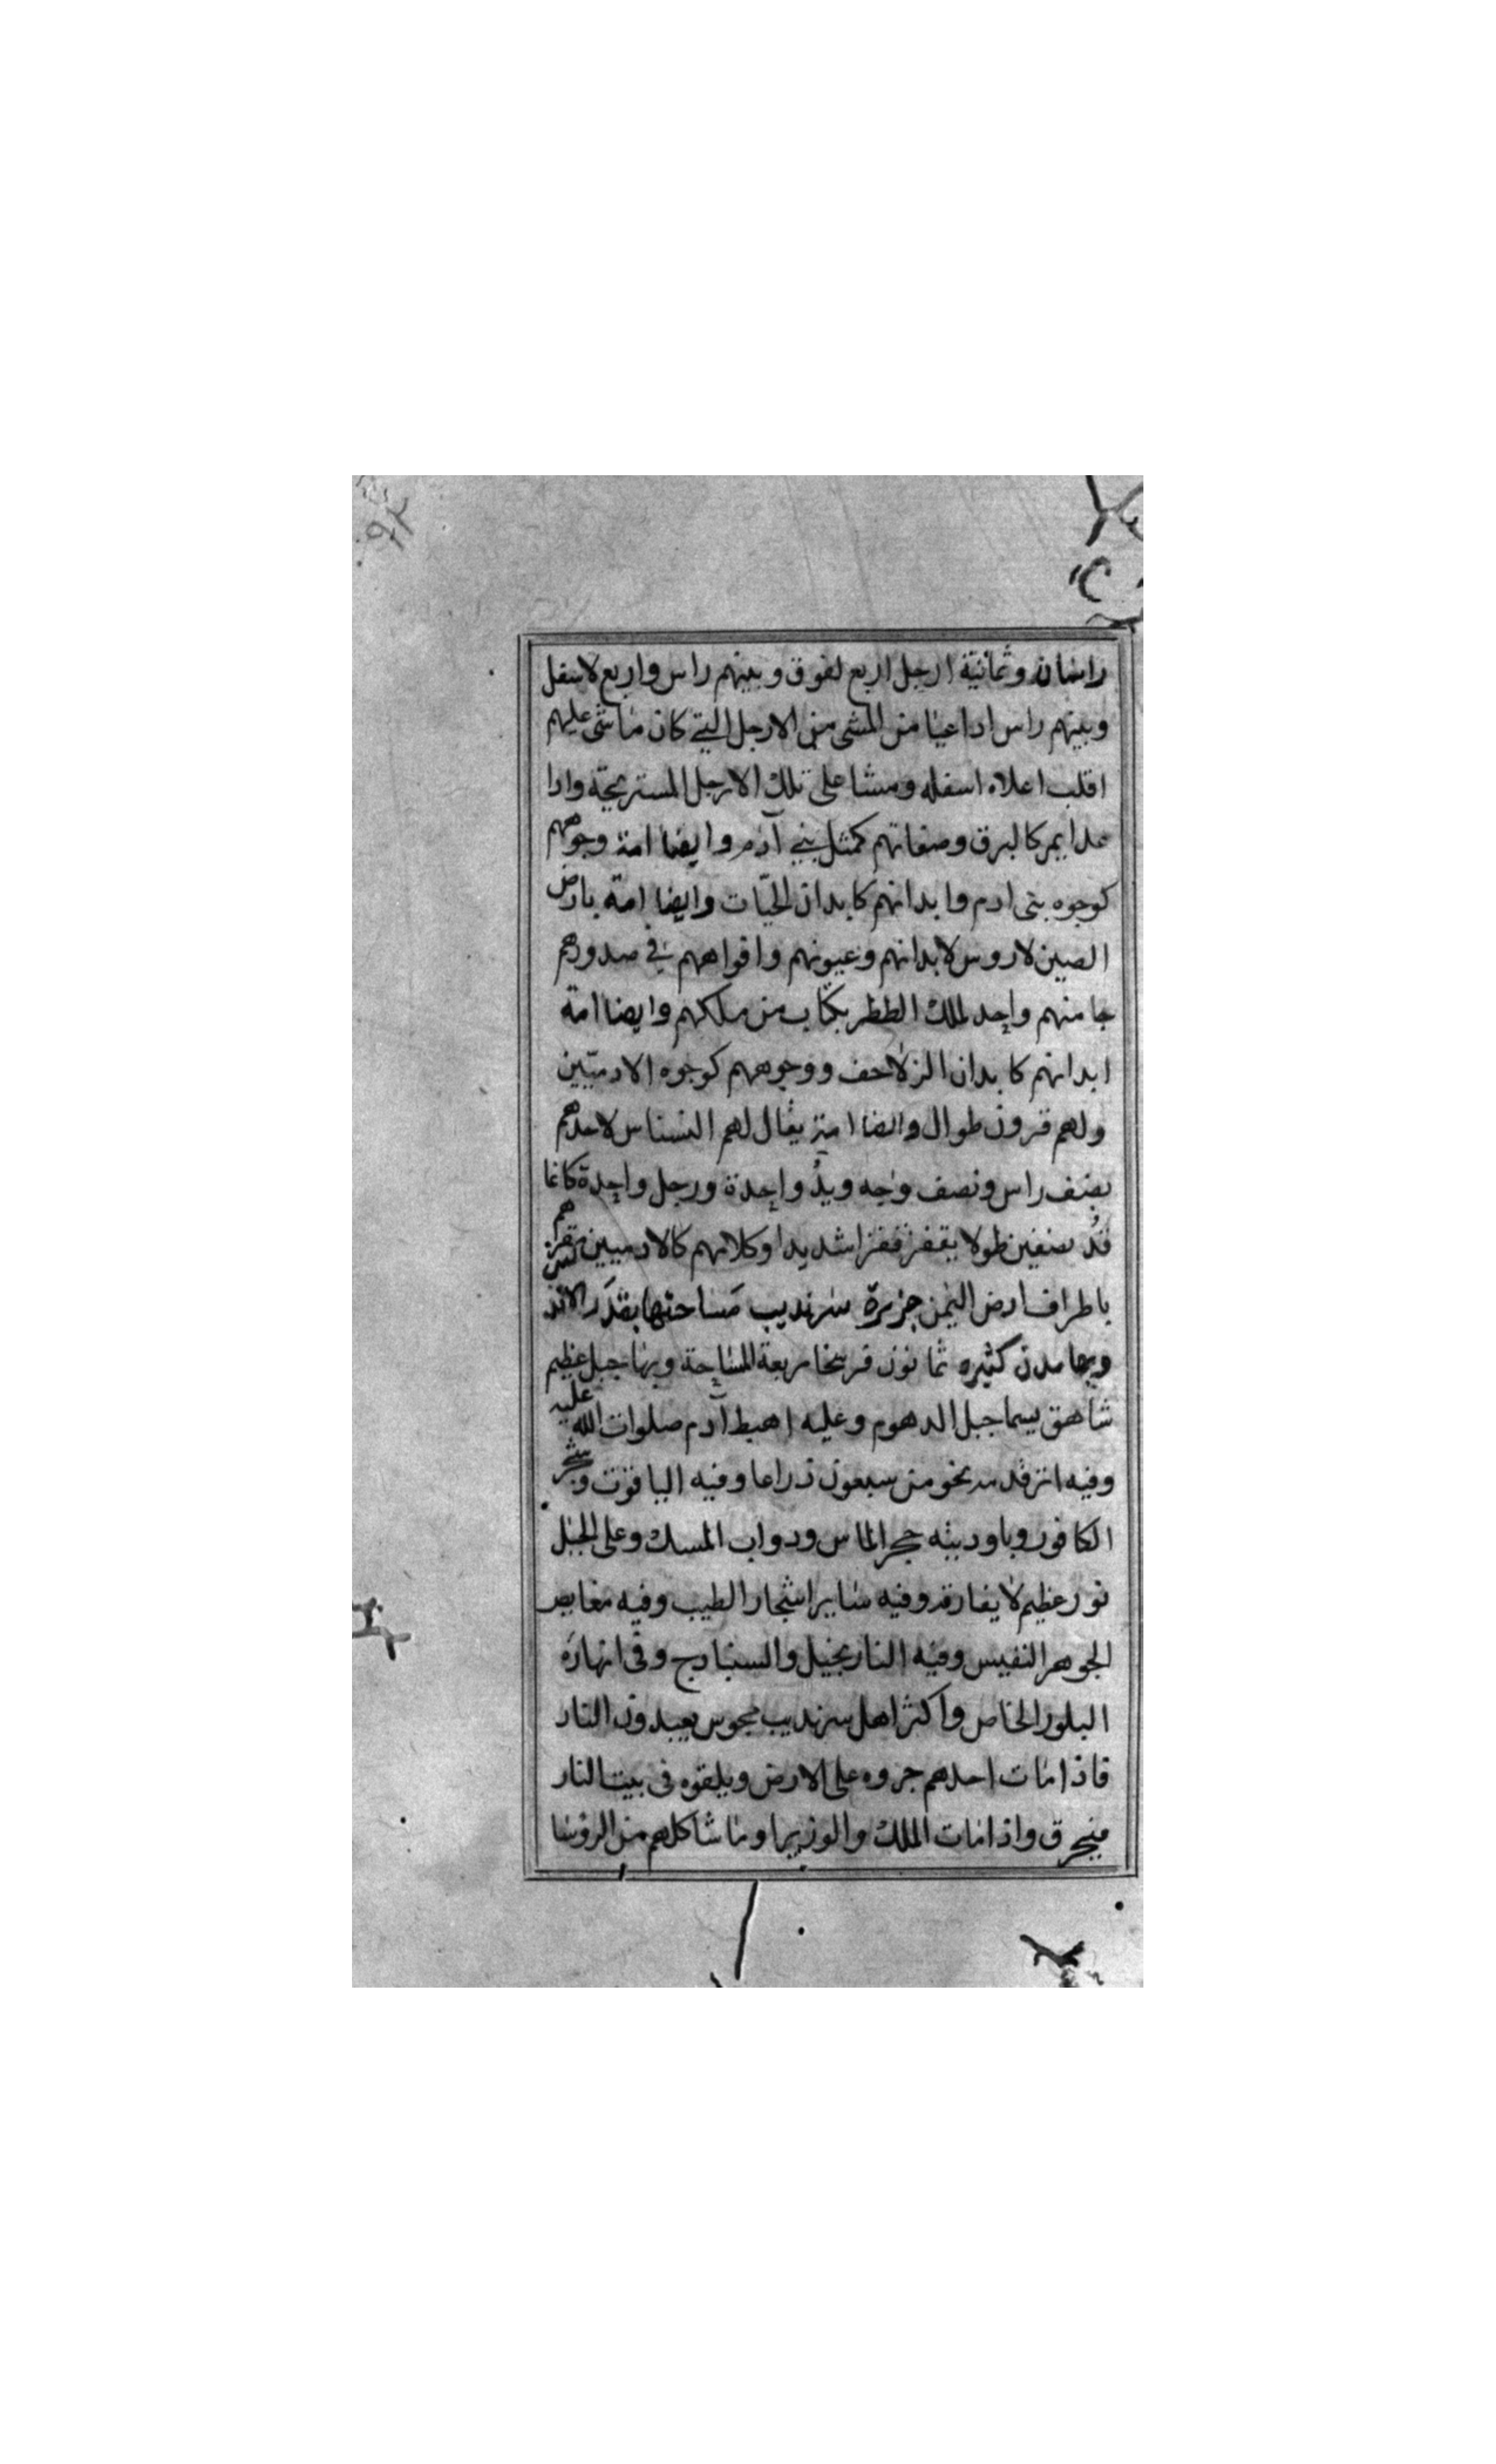 راسان وثمانية ارجل اربع لفوق وبينهم راس واربع لاسفل
وبينهم راس اذا عيا من المشى من الارجل التي كان ماشى عليهم
اقلب اعلاه اسفله ومشا على تلك الارجل المستريحة واذا
عدا يمر كالبرق وصفاتهم كمثل بني آدم وايضا امة وجوههم
كوجوه بنى ادم وابدانهم كابدان الحيّات وايضا امة بارض
الصين لا روس لابدانهم وعيونهم وافواههم في صدورهم
جا منهم واحد لملك الططر بكتاب من ملكهم وايضا امة
ابدانهم كابدان الزلاحف ووجوههم كوجوه الادميّين
ولهم قرون طوال وايضا امة يقال لهم النسناس لاحدهم
نصف راس ونصف وجه ويدُ واحدة ورجل واحدة كانما
قُدُ نصفين طولا يقفز قفزا شديدا وكلامهم كالادميين هم
باطراف ارض اليمن جزيرة سرنديب مساحتها بقدر
وبها مدن كثيره ثمانون فرسخا مربعة المساحة وبها جبل عظيم
شاهق يسما جبل الدهوم وعليه اهبط آدم صلوات الله عليه
وفيه اثر قدمه نحو من سبعون ذراعا وفيه الياقوت وشجر
الكافور وباوديته حجر الماس ودواب المسك وعلى الجبل
نور عظيم لا يفارقه وفيه ساير اشجار الطيب وفيه مغايص
الجوهر النفيس وفيه النارنجيل والسنبادج وفى انهاره
البلور الخاص واكثر اهل سرنديب مجوس يعبدون النار
فاذا مات احدهم جروه على الارض ويلقوه فى بيت النار
فيحرق واذا مات الملك والوزيرا وما شاكلهم من الرؤسا